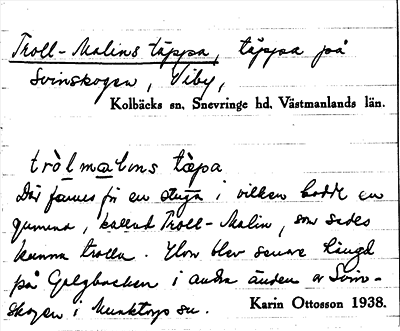 Troll-Malins täppa, täppa på
Svinskogen, Viby,
Kolbäcks sn. Snevringe hd. Västmanlands län.
tròlmalɩns tæpa
Där fannes fr en stuga i vilken bodde en
gumma, kallad Troll-Malin, som sades
kunna trolla. Hon blev senare hängd
på Galgbacken i andra änden av Svin-
skogen i Munktorps sn.
Karin Ottosson 1938.